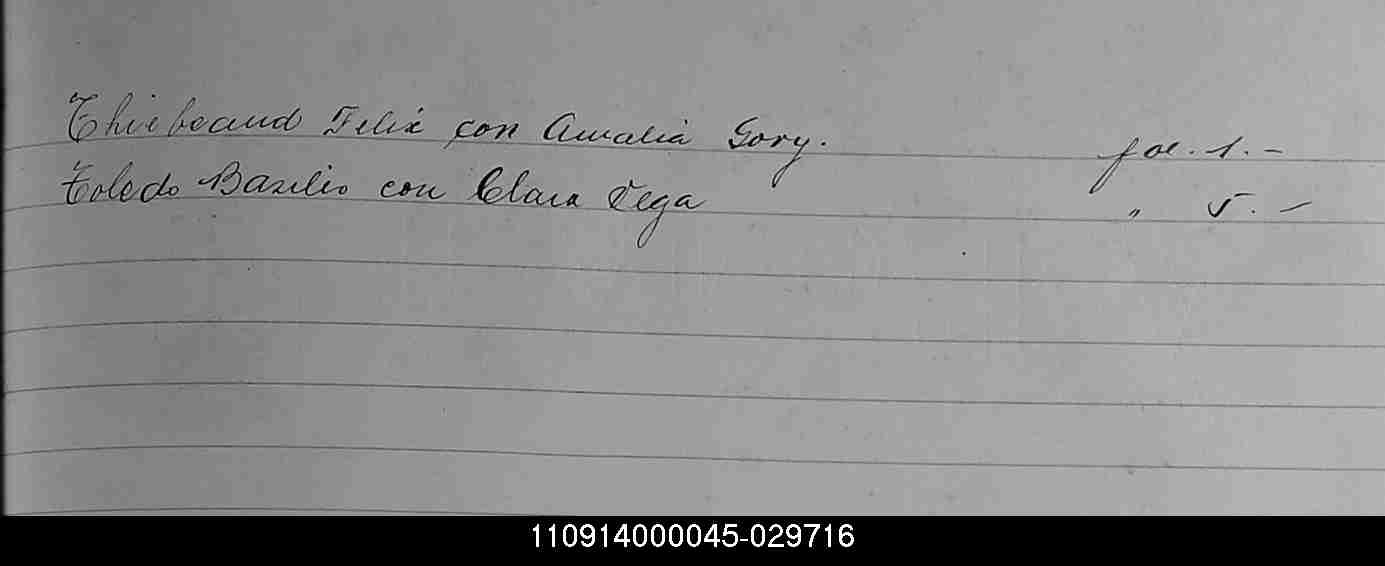 Thiebeaud Felix con Amalia Gory. fol. 1. -
Toledo Basilio con Clara Vega " 5. -
110914000045-029716